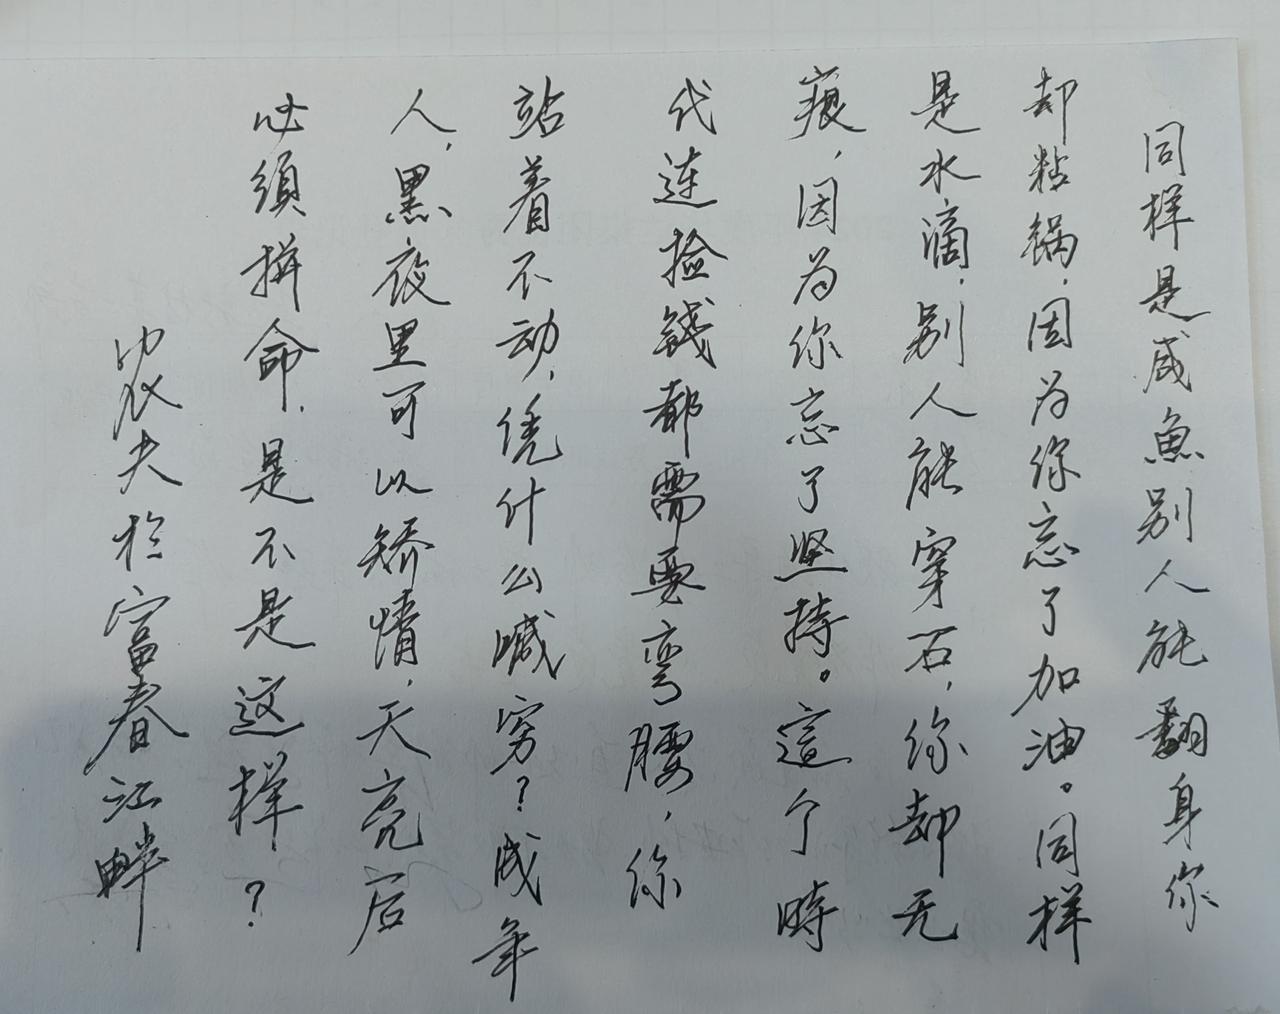 同样是咸魚别人能翻身你
却粘锅，因为你忘了加油。同样
是水滴，别人能穿石，你却无
痕，因为你忘了坚持。這个時
代连捡錢都需要弯腰，你
站着不动，凭什么喊穷？成年
人，黑夜里可以矫情，天亮后
必须拼命，是不是这样？
农夫於富春江畔